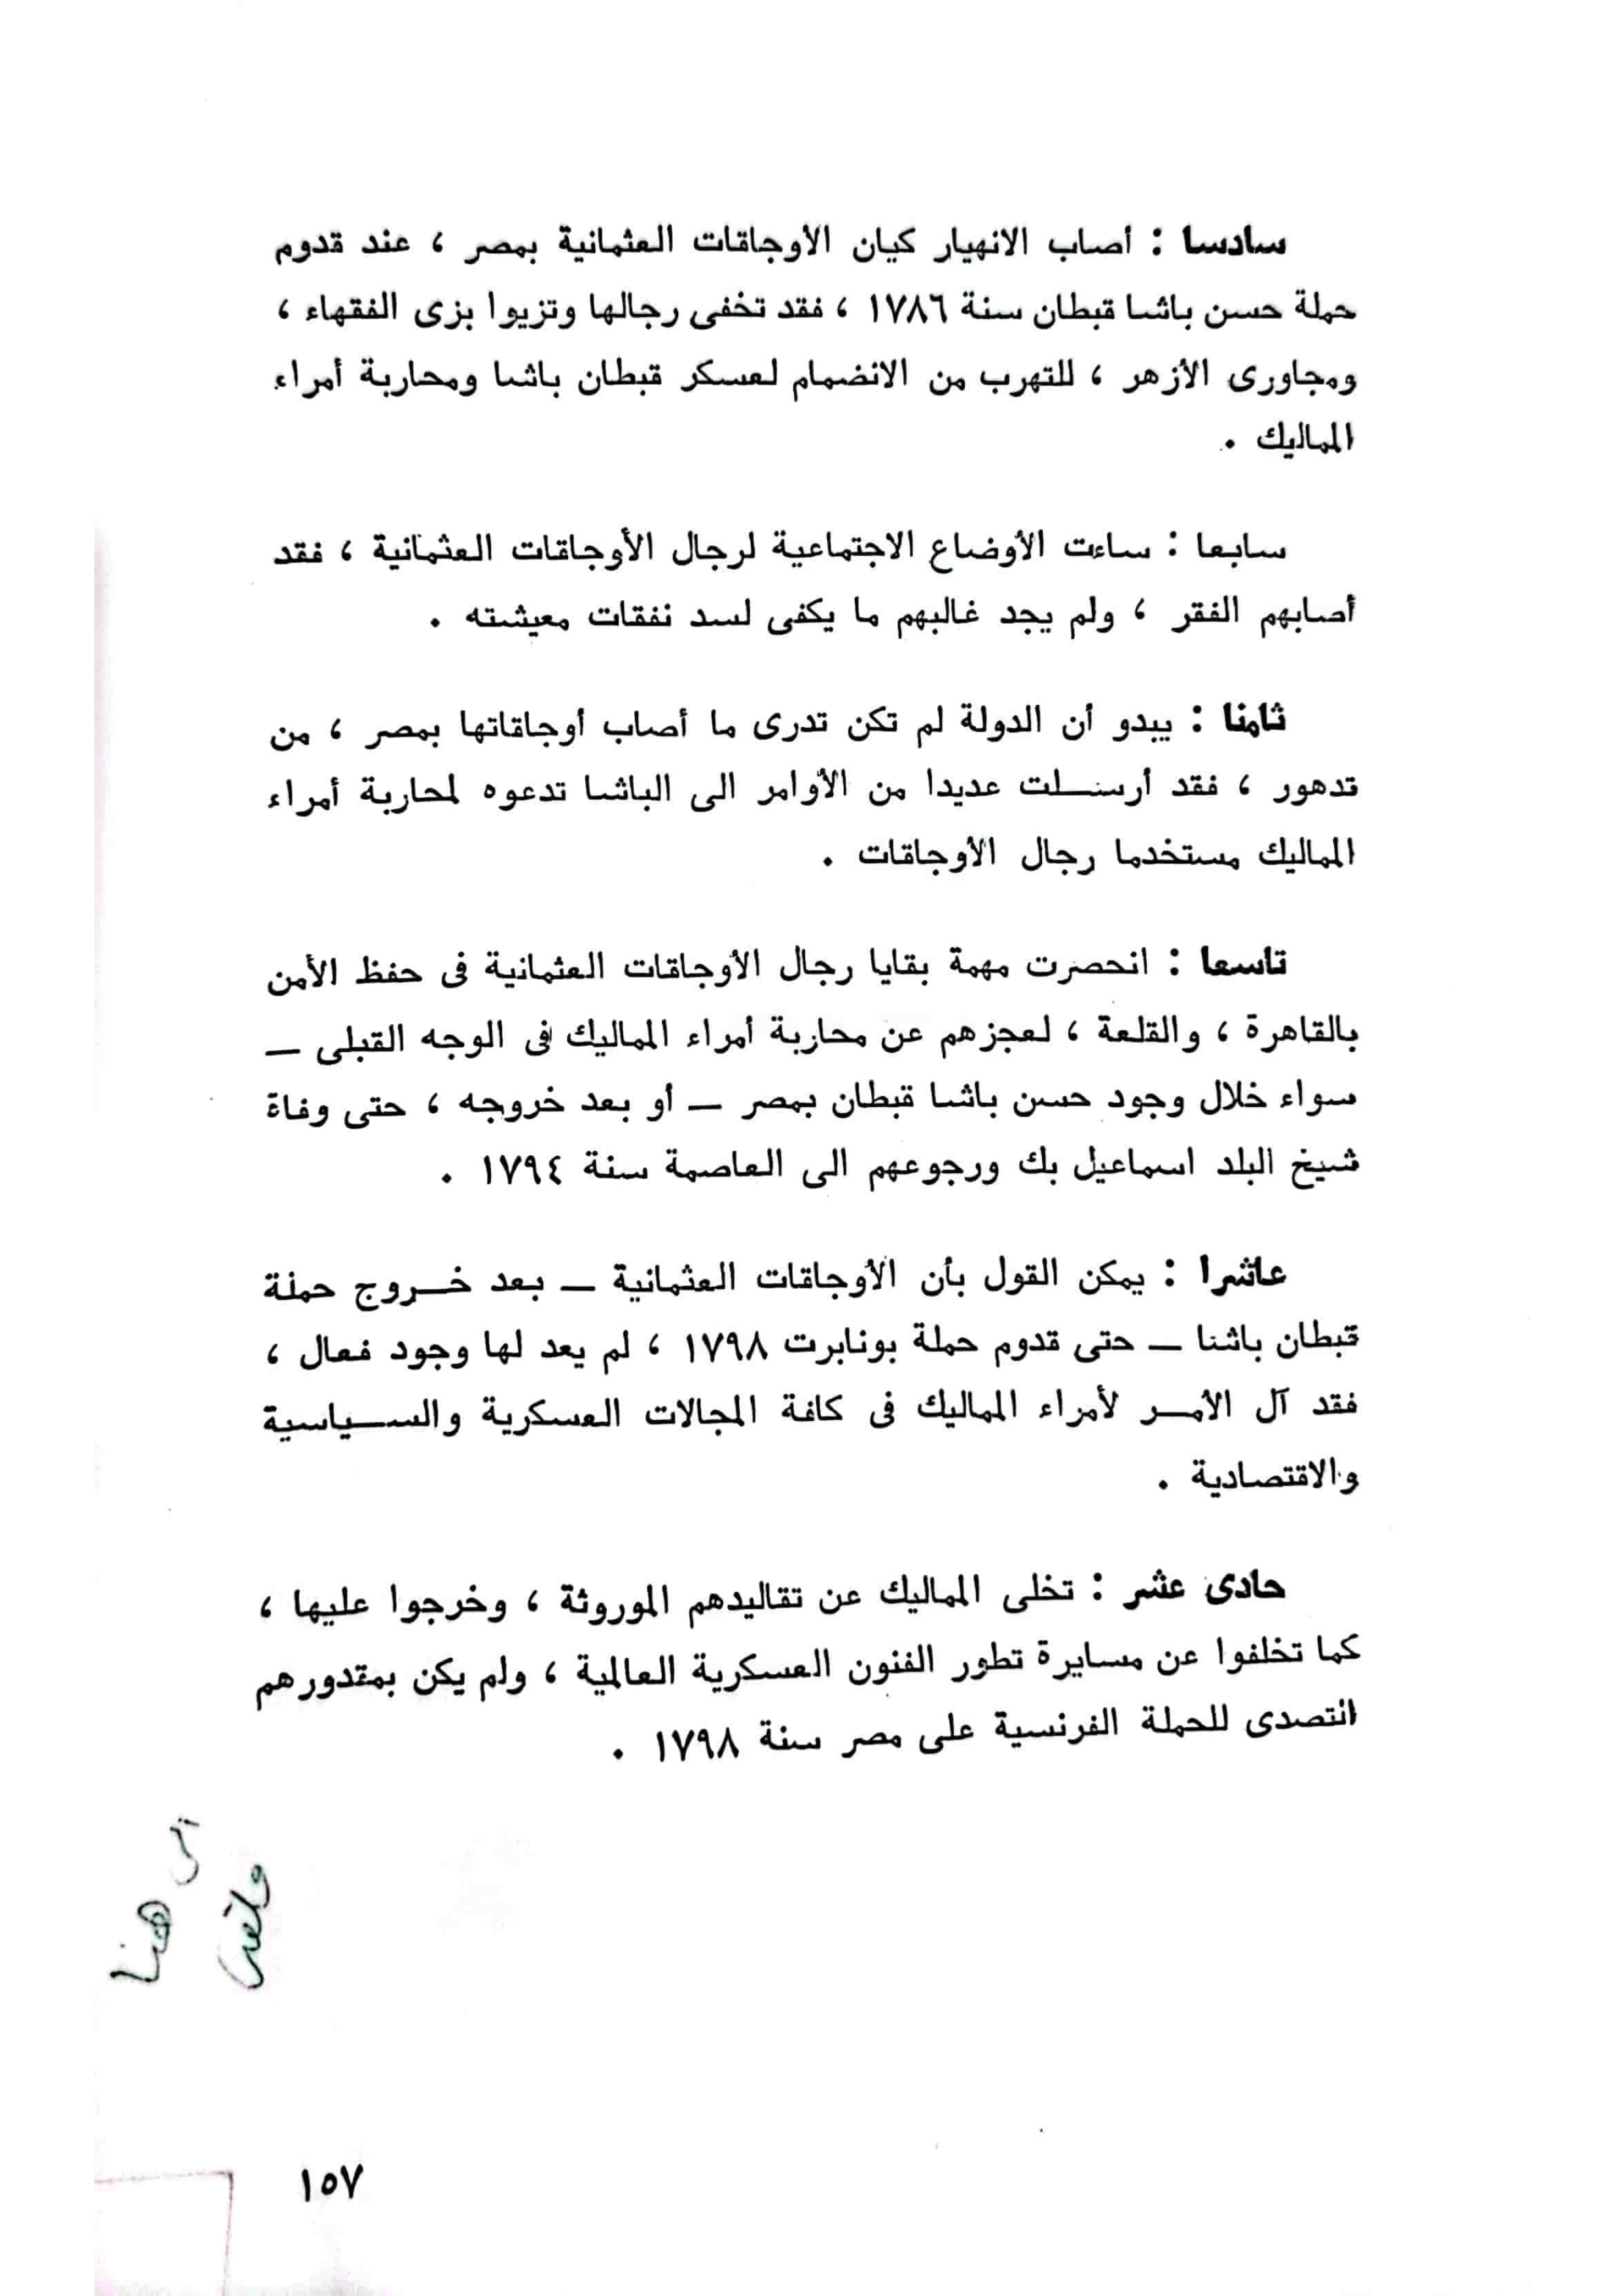 سادسا : أصاب الانهيار كيان الأوجاقات العثمانية بمصر ، عند قدوم
حملة حسن باشا قبطان سنة ١٧٨٦ ، فقد تخفى رجالها وتزيوا بزى الفقهاء ،
ومجاورى الأزهر ، للتهرب من الانضمام لعسكر قبطان باشا ومحاربة أمراء
المماليك .
سابعا : ساءت الأوضاع الاجتماعية لرجال الأوجاقات العثمانية ، فقد
أصابهم الفقر ، ولم يجد غالبهم ما يكفى لسد نفقات معيشته .
ثامنا : يبدو أن الدولة لم تكن تدرى ما أصاب أوجاقاتها بمصر ، من
تدهور ، فقد أرسلت عديدا من الأوامر الى الباشا تدعوه لمحاربة أمراء
المماليك مستخدما رجال الأوجاقات .
تاسعا : انحصرت مهمة بقايا رجال الأوجاقات العثمانية فى حفظ الأمن
بالقاهرة ، والقلعة ، لعجزهم عن محاربة أمراء المماليك فى الوجه القبلى —
سواء خلال وجود حسن باشا قبطان بمصر — أو بعد خروجه ، حتى وفاة
شيخ البلد اسماعيل بك ورجوعهم الى العاصمة سنة ١٧٩٤ .
عاشرا : يمكن القول بأن الأوجاقات العثمانية — بعد خروج حملة
قبطان باشا — حتى قدوم حملة بونابرت ١٧٩٨ ، لم يعد لها وجود فعال ،
فقد آل الأمر لأمراء المماليك فى كافة المجالات العسكرية والسياسية
والاقتصادية .
حادى عشر : تخلى المماليك عن تقاليدهم الموروثة ، وخرجوا عليها ،
كما تخلفوا عن مسايرة تطور الفنون العسكرية العالمية ، ولم يكن بمقدورهم
التصدى للحملة الفرنسية على مصر سنة ١٧٩٨ .
هنا
١٥٧